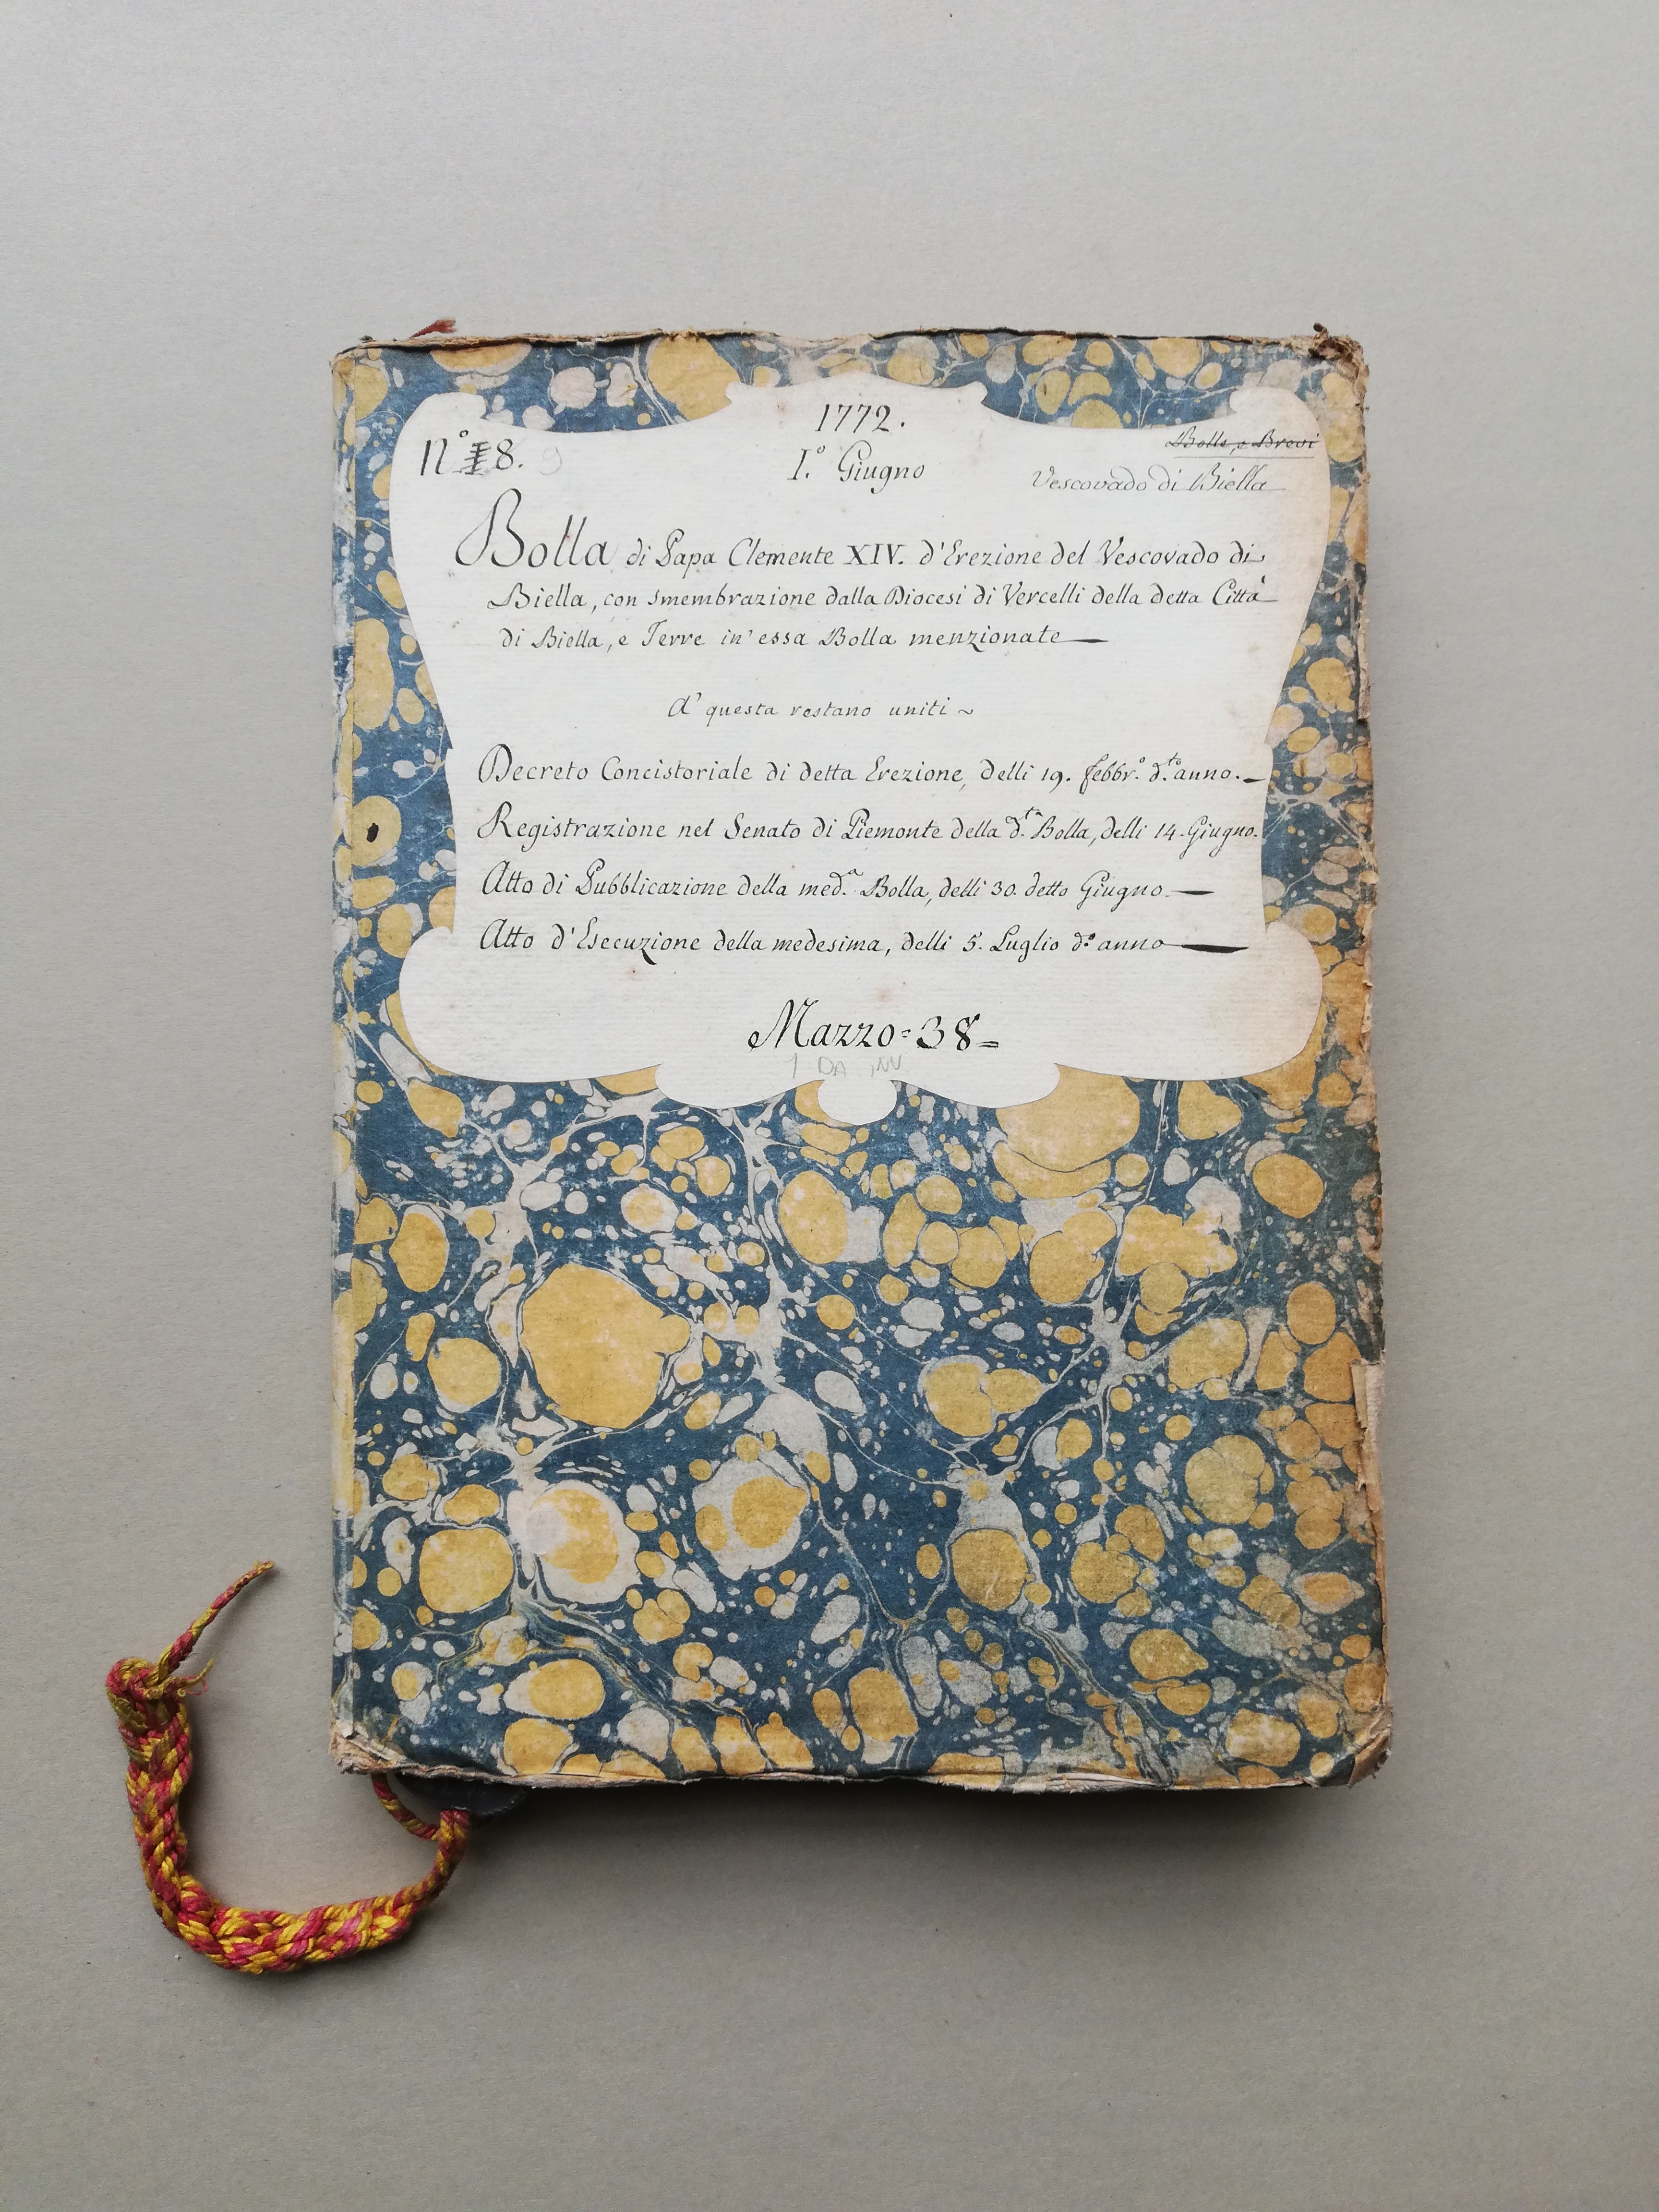 1772.
N.° 8. 9
I.° Giugno
Bolle, e Brevi
Vescovado di Biella
Bolla di Papa Clemente XIV. d'Erezione del Vescovado di
Biella, con smembrazione dalla Diocesi di Vercelli della detta Città
di Biella, e Terre in' essa Bolla menzionate
A' questa restano uniti ~
Decreto Concistoriale di detta Erezione, delli 19. febbr.° d.to anno.
Registrazione nel Senato di Piemonte della d.ta Bolla, delli 14. Giugno.
Atto di Pubblicazione della med.a Bolla, delli 30. detto Giugno.
Atto d'Esecuzione della medesima, delli 5. Luglio d.° anno
Mazzo = 38 =
1 DA INV